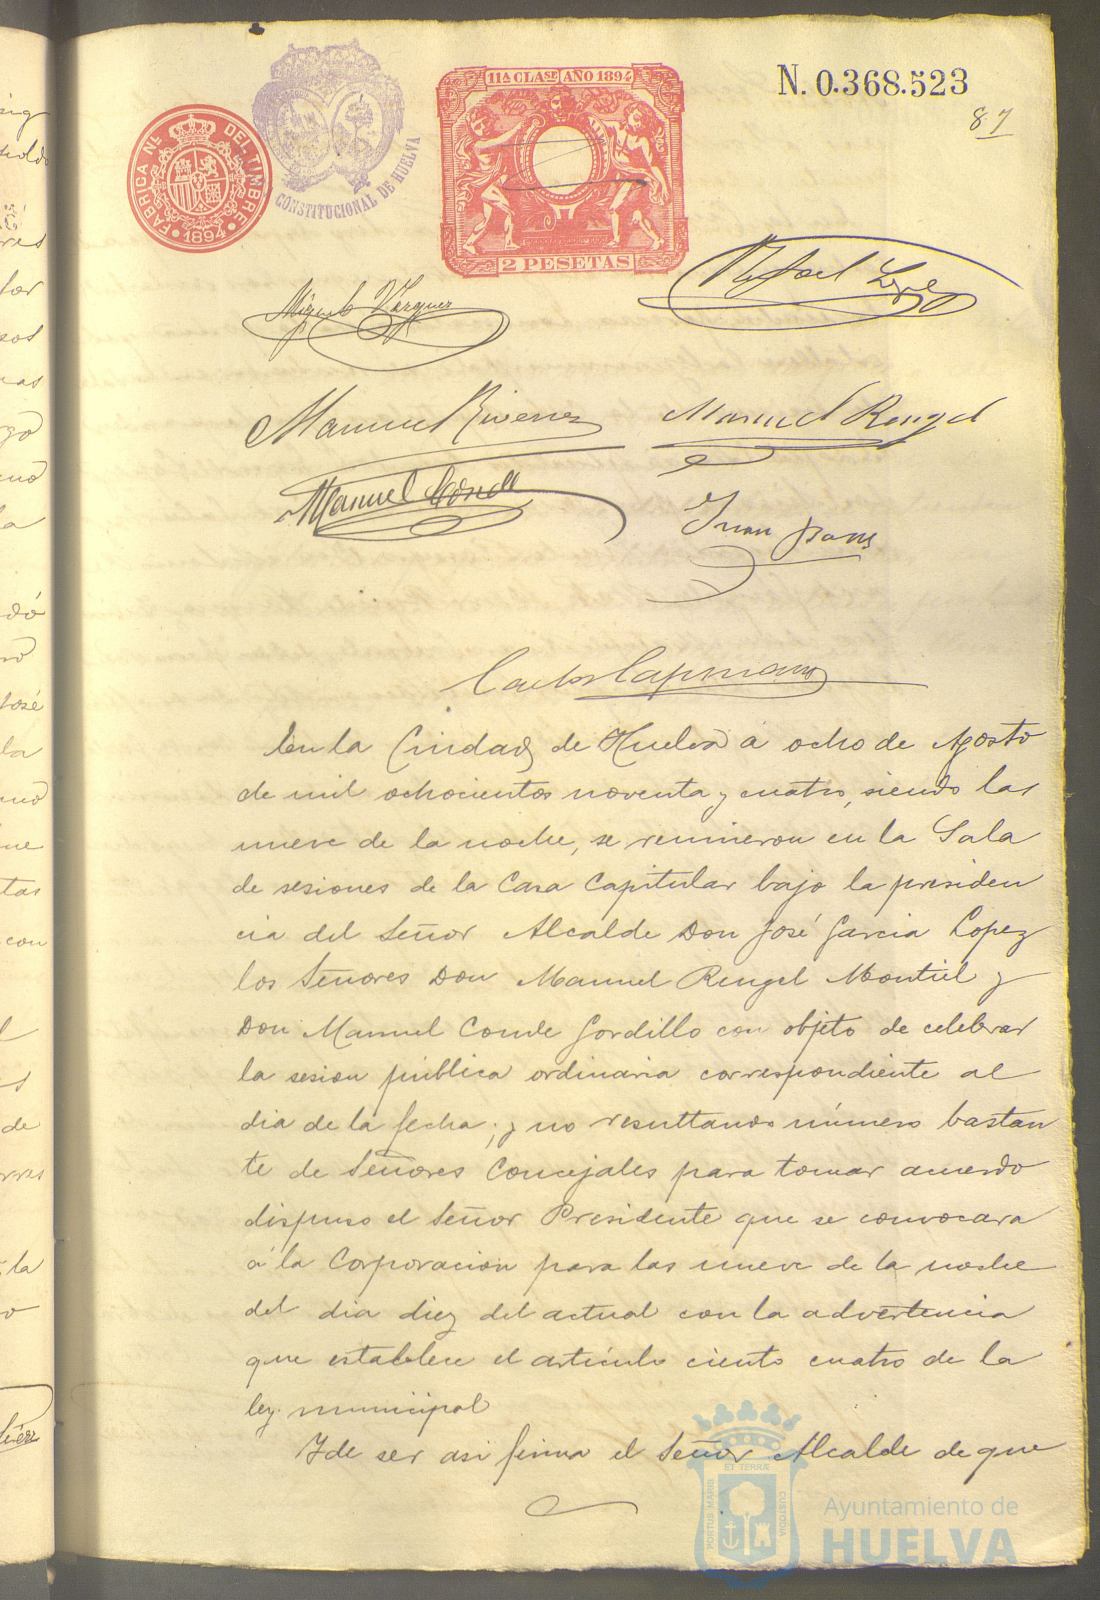 N. 0.368.523
87
11ª CLASE AÑO 1894
FABRICA NL. DEL TIMBRE
1894
CONSTITUCIONAL DE HUELVA
2 PESETAS
Rafael
Miguel Vazquez
Manuel Rengel
Manuel Conde
Juan
Carlos
En la Ciudad de Huelva á ocho de Agosto
de mil ochocientos noventa y cuatro, siendo las
nueve de la noche, se reunieron en la Sala
de sesiones de la Casa Capitular bajo la presiden
cia del Señor Alcalde Don José Garcia Lopez
los Señores Don Manuel Rengel Montiel y
Don Manuel Conde Gordillo con objeto de celebrar
la sesion pública ordinaria correspondiente al
dia de la fecha; y no resultando número bastan
te de Señores Concejales para tomar acuerdo
dispuso el Señor Presidente que se convocara
á la Corporacion para las nueve de la noche
del dia diez del actual con la advertencia
que establece el artículo ciento cuatro de la
ley municipal
Y de ser asi firma el Señor Alcalde de que
PORTUS MARIS ET TERRÆ CUSTODIA
Ayuntamiento de
HUELVA